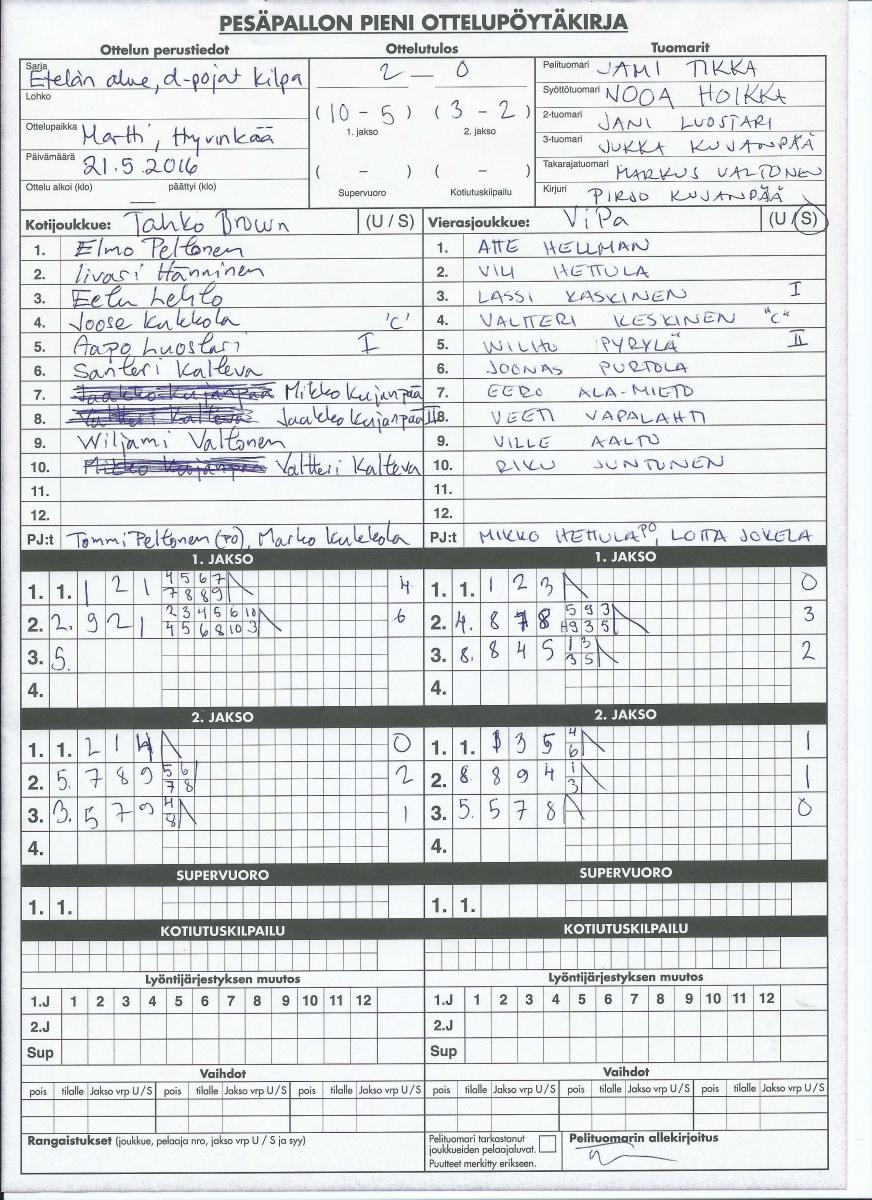 PESÄPALLON PIENI OTTELUPÖYTÄKIRJA
Ottelun perustiedot
Sarja
Etelän alue, d-pojat kilpa
Lohko
Ottelupaikka
Martti, Hyvinkää
Päivämäärä
21.5.2016
Ottelu alkoi (klo) päättyi (klo)
Ottelutulos
2 — 0
(10 - 5) (3 - 2)
1. jakso 2. jakso
( - ) ( - )
Supervuoro Kotiutuskilpailu
Tuomarit
Pelituomari JAMI TIKKA
Syöttötuomari NOOA HOIKKA
2-tuomari JANI LUOSTARI
3-tuomari JUKKA KUJANPÄÄ
Takarajatuomari MARKUS VALTONEN
Kirjuri PIRJO KUJANPÄÄ
Kotijoukkue: Tahko Brown (U / S)
1. Elmo Peltonen
2. Iivari Hänninen
3. Eetu Lehto
4. Joose Kukkola 'C'
5. Aapo Luostari I
6. Santeri Kalteva
7. Jaakko Kujanpää Mikko Kujanpää
8. Valtteri Kalteva Jaakko Kujanpää II
9. Wiljami Valtonen
10. Mikko Kujanpää Valtteri Kalteva
11.
12.
PJ:t Tommi Peltonen (PO), Marko Kukkola
Vierasjoukkue: ViPa (U / S)
1. ATTE HELLMAN
2. VILI HETTULA
3. LASSI KASKINEN I
4. VALTTERI KESKINEN "C"
5. WILHO PYRYLÄ II
6. JOONAS PURTOLA
7. EERO ALA-MIETO
8. VEETI VAPALAHTI
9. VILLE AALTO
10. RIKU JUNTUNEN
11.
12.
PJ:t MIKKO HETTULA PO, LOTTA JOKELA
1. JAKSO
1. 1. 1 2 1 4 5 6 7 4
7 8 8 9
2. 2. 9 2 1 2 3 4 5 6 10 6
4 5 6 8 10 3
3. 5.
4.
2. JAKSO
1. 1. 2 1 4 0
2. 5. 7 8 9 5 6 2
7 8
3. 3. 5 7 9 4 1
8
4.
SUPERVUORO
1. 1.
KOTIUTUSKILPAILU
Lyöntijärjestyksen muutos
1.J 1 2 3 4 5 6 7 8 9 10 11 12
2.J
Sup
Vaihdot
pois tilalle Jakso vrp U / S pois tilalle Jakso vrp U / S pois tilalle Jakso vrp U / S
Rangaistukset (joukkue, pelaaja nro, jakso vrp U / S ja syy)
1. JAKSO
1. 1. 1 2 3 0
2. 4. 8 8 5 9 3 3
9 3 5
3. 8. 8 4 5 1 3 2
3 5
4.
2. JAKSO
1. 1. 3 5 4 1
6
2. 8 8 9 4 1 1
3
3. 5. 5 7 8 0
4.
SUPERVUORO
1. 1.
KOTIUTUSKILPAILU
Lyöntijärjestyksen muutos
1.J 1 2 3 4 5 6 7 8 9 10 11 12
2.J
Sup
Vaihdot
pois tilalle Jakso vrp U / S pois tilalle Jakso vrp U / S pois tilalle Jakso vrp U / S
Pelituomari tarkastanut
joukkueiden pelaajaluvat.
Puutteet merkitty erikseen.
Pelituomarin allekirjoitus